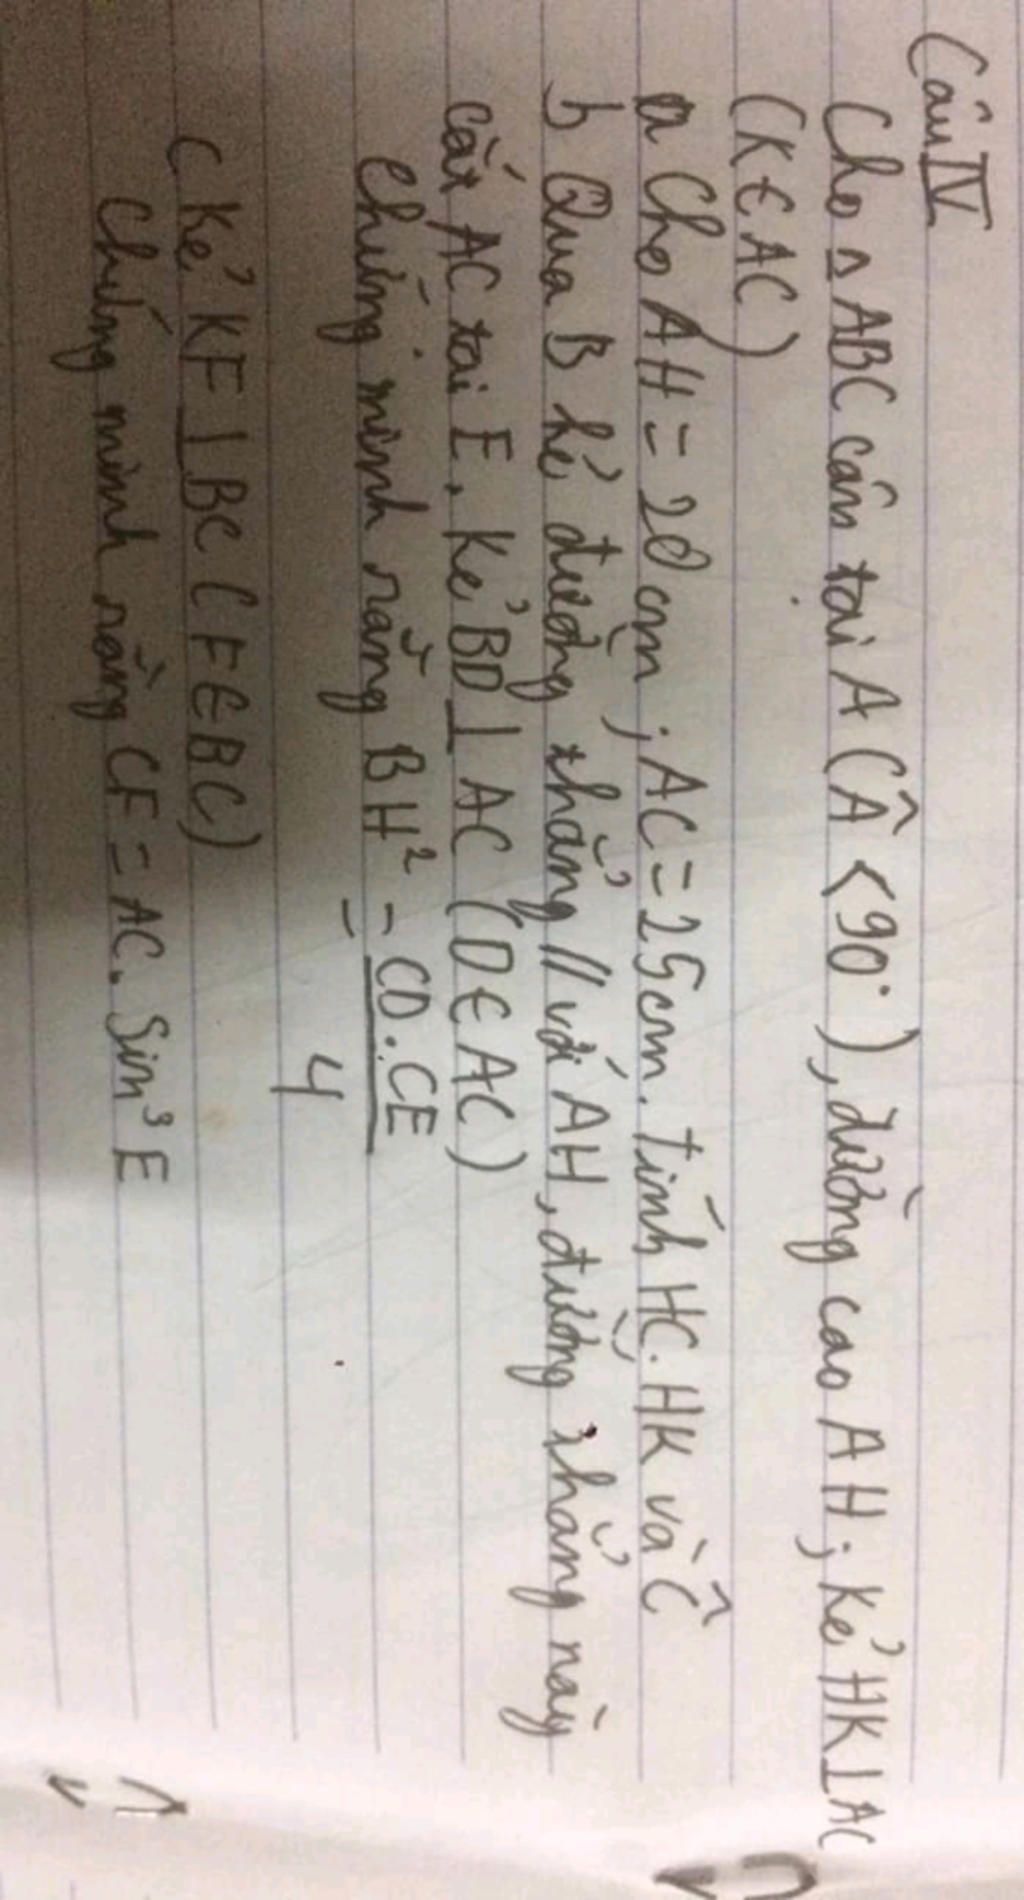 Câu IV
Cho △ABC cân tại A (Â < 90°), đường cao AH; kẻ HK⊥AC
(K∈AC)
a Cho AH = 20cm; AC = 25cm. Tính HC. HK và Ĉ
b Qua B kẻ đường thẳng // với AH, đường thẳng này
cắt AC tại E. Kẻ BD⊥AC (D∈AC)
Chứng minh rằng BH² = CD.CE / 4
c Kẻ KF⊥BC (F∈BC)
Chứng minh rằng CF = AC. Sin³E